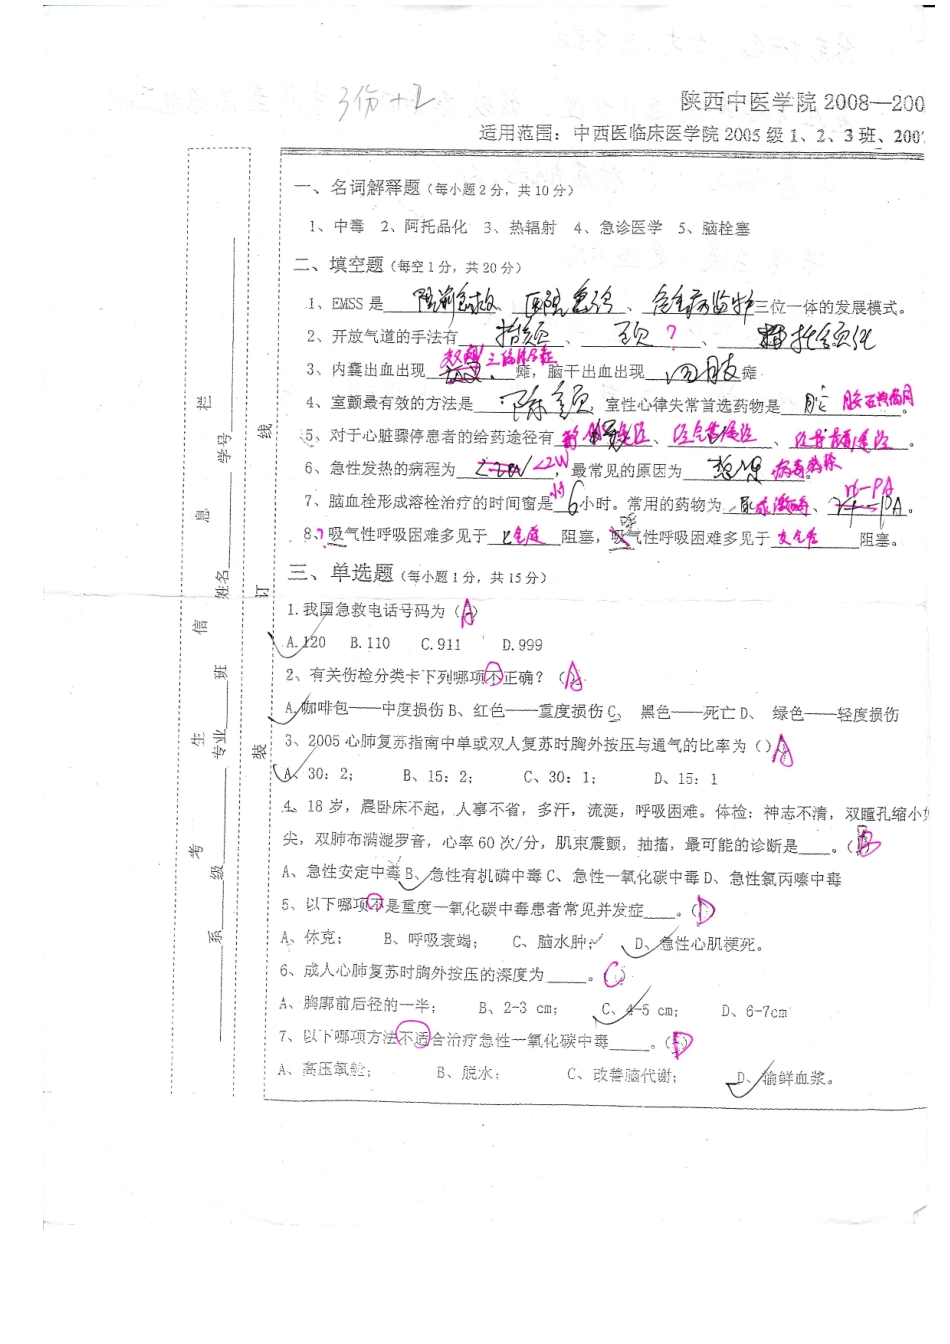 3份+2
陕西中医学院 2008—200
适用范围：中西医临床医学院 2005 级 1、2、3 班、200
一、名词解释题（每小题 2 分，共 10 分）
1、中毒 2、阿托品化 3、热辐射 4、急诊医学 5、脑栓塞
二、填空题（每空 1 分，共 20 分）
1、EMSS 是 院前急救、医院急诊、危重病监护三位一体的发展模式。
2、开放气道的手法有 抬颏、
3、内囊出血出现 三偏体征 瘫，脑干出血出现 四肢瘫.
4、室颤最有效的方法是 除颤，室性心律失常首选药物是 胺 胺碘酮。
5、对于心脏骤停患者的给药途径有 静脉途径、经气管途径、
6、急性发热的病程为 <2W，最常见的原因为 感染 病毒感染。
7、脑血栓形成溶栓治疗的时间窗是 6 小时。常用的药物为 尿激酶、rt-PA。
8、?吸气性呼吸困难多见于 上气道 阻塞，呼气性呼吸困难多见于 支气管 阻塞。
三、单选题（每小题 1 分，共 15 分）
1.我国急救电话号码为（A）
A.120 B.110 C.911 D.999
2、有关伤检分类卡下列哪项不正确？（A）
A.咖啡包——中度损伤 B、红色——重度损伤 C、 黑色——死亡 D、 绿色——轻度损伤
3、2005 心肺复苏指南中单或双人复苏时胸外按压与通气的比率为（）A
A、30：2； B、15：2； C、30：1； D、15：1
4。18 岁，晨卧床不起，人事不省，多汗，流涎，呼吸困难。体检：神志不清，双瞳孔缩小如
尖，双肺布满湿罗音，心率 60 次/分，肌束震颤，抽搐，最可能的诊断是___。（B
A、急性安定中毒 B、急性有机磷中毒 C、急性一氧化碳中毒 D、急性氯丙嗪中毒
5、以下哪项不是重度一氧化碳中毒患者常见并发症___。（D）
A、休克； B、呼吸衰竭； C、脑水肿； D、急性心肌梗死。
6、成人心肺复苏时胸外按压的深度为____。（C）
A、胸廓前后径的一半； B、2-3 cm； C、4-5 cm； D、6-7cm
7、以下哪项方法不适合治疗急性一氧化碳中毒____。（D）
A、高压氧舱； B、脱水； C、改善脑代谢； D、输鲜血浆。
考 生 信 息 栏
系 级 专业 班 姓名 学号
装 订 线